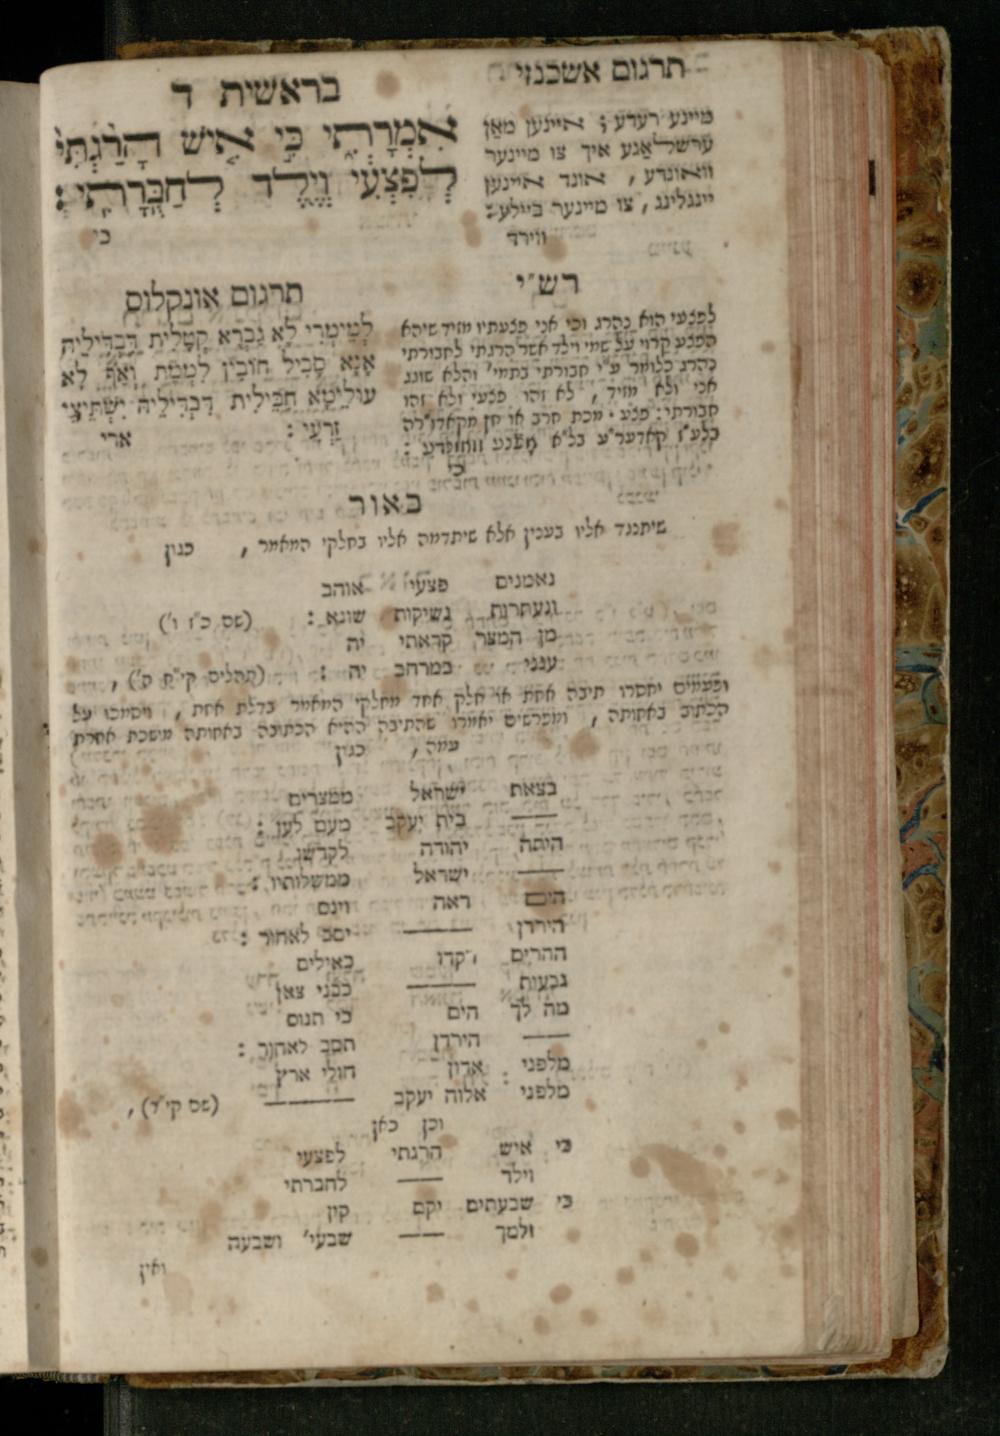 תרגום אשכנזי
בראשית ד
מיינע רעדע ; איינען מאַן
ערשלאַגע איך צו מיינער
וואונדע , אונד איינען
יינגלינג , צו מיינער ביילע :
ווירד
אִמְרָתִי כִּי אִישׁ הָרַגְתִּי
לְפִצְעִי וְיֶלֶד לְחַבֻּרָתִי :
כי
רש״י
לפצעי הוא נהרג וכי אני פצעתיו מזיד שיהא
הפצע קרוי על שמי וילד אשר הרגתי לחבורתי
נהרג כלומר ע״י חבורתי בתמי׳ והלא שוגג
אני ולא מזיד , לא זהו פצעי ולא זהו
חבורתי : פצע . מכת חרב או חץ מקאדו״רה
בלע״ז
כי
תרגום אונקלוס
לְמֵימְרִי לָא גַבְרָא קְטָלִית דִּבְדִילֵיהּ
אֲנָא סָבִיל חוֹבִין לִמְמָת וְאַף לָא
עוּלֵימָא חַבֵּילִית דִּבְדִילֵיהּ יִשְׁתֵּיצֵי
זַרְעִי :
ארי
באור
שיתנגד אליו בענין אלא שיתדמה אליו בחלקי המאמר , כגון
נאמנים פצעי אוהב
ונעתרות נשיקות שונא : (שם כ״ז ו׳)
מן המצר קראתי יה
ענני במרחב יה : (תהלים קי״ח ה׳) ,
ופעמים יחסרו תיבה אחת או חלק אחד מחלקי המאמר בדלת אחת , ויסמכו על
הכתוב באחותה , ומפרשים יאמרו שהתיבה ההיא הכתובה באחותה מושכת אחרת
עמה , כגון
בצאת ישראל ממצרים
—— בית יעקב מעם לעז :
היתה יהודה לקדשו
—— ישראל ממשלותיו :
הים ראה וינס
הירדן —— יסב לאחור :
ההרים רקדו כאילים
גבעות —— כבני צאן
מה לך הים כי תנוס
—— הירדן תסב לאחור :
מלפני אדון חולי ארץ
מלפני אלוה יעקב —— : (שם קי״ד) ,
וכן כאן
כי איש הרגתי לפצעי
וילד —— לחברתי
כי שבעתים יקם קין
ולמך —— שבעי׳ ושבעה
ואין